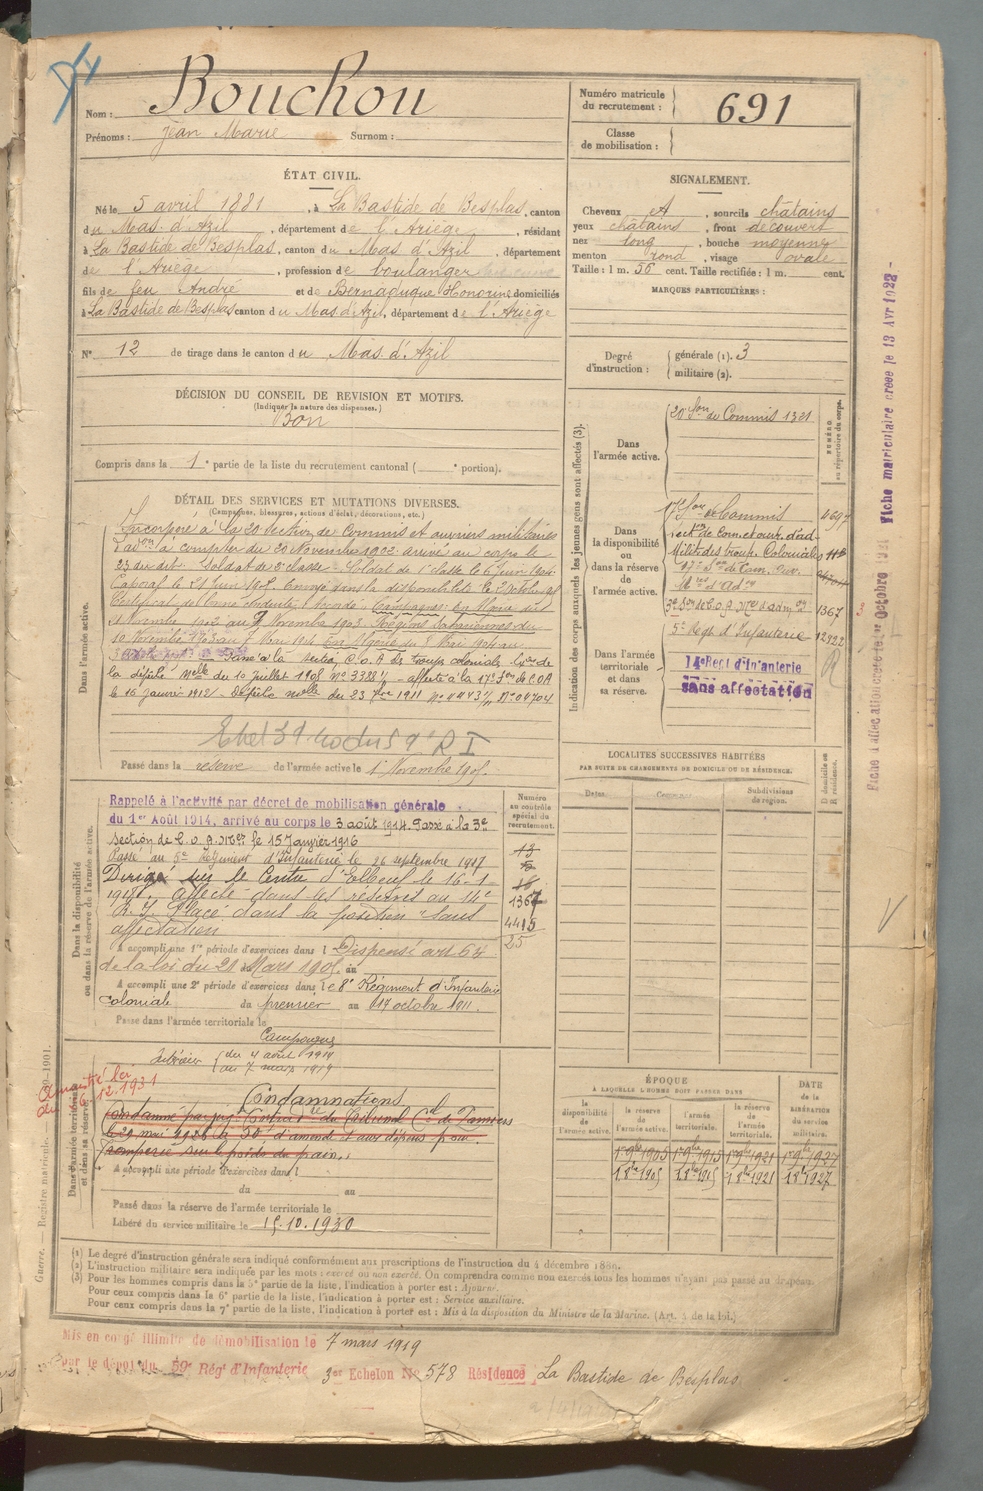 Nom : Bouchou
Prénoms : Jean Marie Surnom :
Numéro matricule du recrutement : 691
Classe de mobilisation :
ÉTAT CIVIL.
Né le 5 avril 1881, à La Bastide de Besplas, canton
du Mas d'Azil, département de l'Ariège, résidant
à La Bastide de Besplas, canton du Mas d'Azil, département
de l'Ariège, profession de boulanger
fils de feu André et de Bernaduque Honorine domiciliés
à La Bastide de Besplas canton du Mas d'Azil, département de l'Ariège
N° 12 de tirage dans le canton du Mas d'Azil
SIGNALEMENT.
Cheveux A, sourcils châtains
yeux châtains, front découvert
nez long, bouche moyenne
menton rond, visage ovale
Taille : 1 m. 56 cent. Taille rectifiée : 1 m. cent.
MARQUES PARTICULIÈRES :
Degré d'instruction : générale (1). 3
militaire (2).
DÉCISION DU CONSEIL DE REVISION ET MOTIFS.
(Indiquer la nature des dispenses.)
Bon
Compris dans la 1e partie de la liste du recrutement cantonal ( e portion).
DÉTAIL DES SERVICES ET MUTATIONS DIVERSES.
(Campagnes, blessures, actions d'éclat, décorations, etc.)
Dans l'armée active.
Incorporé à la 20e section de Commis et ouvriers militaires
d'adon à compter du 20 Novembre 1902. arrivé au corps le
23 du dit. Soldat de 2e classe. Soldat de 1e classe le 6 janvier 1904.
Caporal le 21 Juin 1905. Envoyé dans la disponibilité le
Certificat de bonne conduite accordé. Campagnes:
1903. Régions Sahariennes du
10 Novembre 1903 au 7 Mai 1904 En Algérie du 8 Mai 1904 au
Passé à la section C.O.A des troupes coloniales
la dépêche Melle du 10 juillet 1908 N° 3388 - affecté à la 17e Son de C.O.A
le 16 janvier 1912 - Dépêche melle du 23 1911
Passé dans la réserve de l'armée active le 1er Novembre 1905.
Indication des corps auxquels les jeunes gens sont affectés (3).
NUMÉRO au répertoire du corps.
Dans l'armée active.
20e Son de Commis 1321
Dans la disponibilité ou dans la réserve de l'armée active.
17e Son de Commis
17e Son de Com. Ouv.
Mres d'Adon
3e Son de C.O.A. Mre d'adm on 1367
5e Regt d'Infanterie 12922
Dans l'armée territoriale et dans sa réserve.
14e Regt d'Infanterie
sans affectation
R
Dans la disponibilité ou dans la réserve de l'armée active.
Numéro au contrôle spécial du recrutement.
Rappelé à l'activité par décret de mobilisation générale
du 1er Août 1914, arrivé au corps le 3 août 1914. Passé à la 3e
section de C.O.A. Mres le 15 Janvier 1916
Passé au 5e Régiment d'Infanterie le 26 septembre 1917
Dirigé sur le Centre d'Elbeuf le 16-1
1918. affecté dans les réserves au 14e
R.I. Placé dans la position "sans
affectation
13
1367
4415
25
A accompli une 1re période d'exercices dans l Dispensé art. 64
de la loi du 21 Mars 1905. au
A accompli une 2e période d'exercices dans le 8e Régiment d'Infanterie
coloniale du premier au 17 octobre 1911.
Passé dans l'armée territoriale le
Campagnes
Intérieur du 4 août 1914
au 7 mars 1919
Dans l'armée territoriale et dans sa réserve.
Amnistié loi
du 26.12.1931
Condamnations
Condamné par jugt Contre du Tribunal Cel de Pamiers
le 29 mai 1926 à 50f d'amende et aux dépens pour
tromperie sur le poids du pain.
A accompli une période d'exercices dans l
du au
Passé dans la réserve de l'armée territoriale le
Libéré du service militaire le 15.10.1930
LOCALITÉS SUCCESSIVES HABITÉES
PAR SUITE DE CHANGEMENTS DE DOMICILE OU DE RÉSIDENCE.
Dates. Communes. Subdivisions de région. D domicile ou R résidence.
ÉPOQUE
À LAQUELLE L'HOMME DOIT PASSER DANS
la disponibilité de l'armée active. la réserve de l'armée active. l'armée territoriale. la réserve de l'armée territoriale.
DATE de la LIBÉRATION du service militaire.
1er 9bre 1905 1er 9bre 1915 1er 9bre 1921 1er 9bre 1927
1 8bre 1905 1 8bre 1915 1 8bre 1921 1 8bre 1927
Fiche matriculaire créée le 13 Avr 1922
Fiche d'affectation créée le 1er Octobre 1921
Guerre. — Registre matricule. 1901.
(1) Le degré d'instruction générale sera indiqué conformément aux prescriptions de l'instruction du 4 décembre 1889.
(2) L'instruction militaire sera indiquée par les mots : exercé ou non exercé. On comprendra comme non exercés tous les hommes n'ayant pas passé au drapeau.
(3) Pour les hommes compris dans la 5e partie de la liste, l'indication à porter est : Ajourné.
Pour ceux compris dans la 6e partie de la liste, l'indication à porter est : Service auxiliaire.
Pour ceux compris dans la 7e partie de la liste, l'indication à porter est : Mis à la disposition du Ministre de la Marine. (Art. 4 de la loi.)
Mis en congé illimité de démobilisation le 7 mars 1919
par le dépôt du 59e Régt d'Infanterie 3me Echelon N° 578 Résidence La Bastide de Besplas